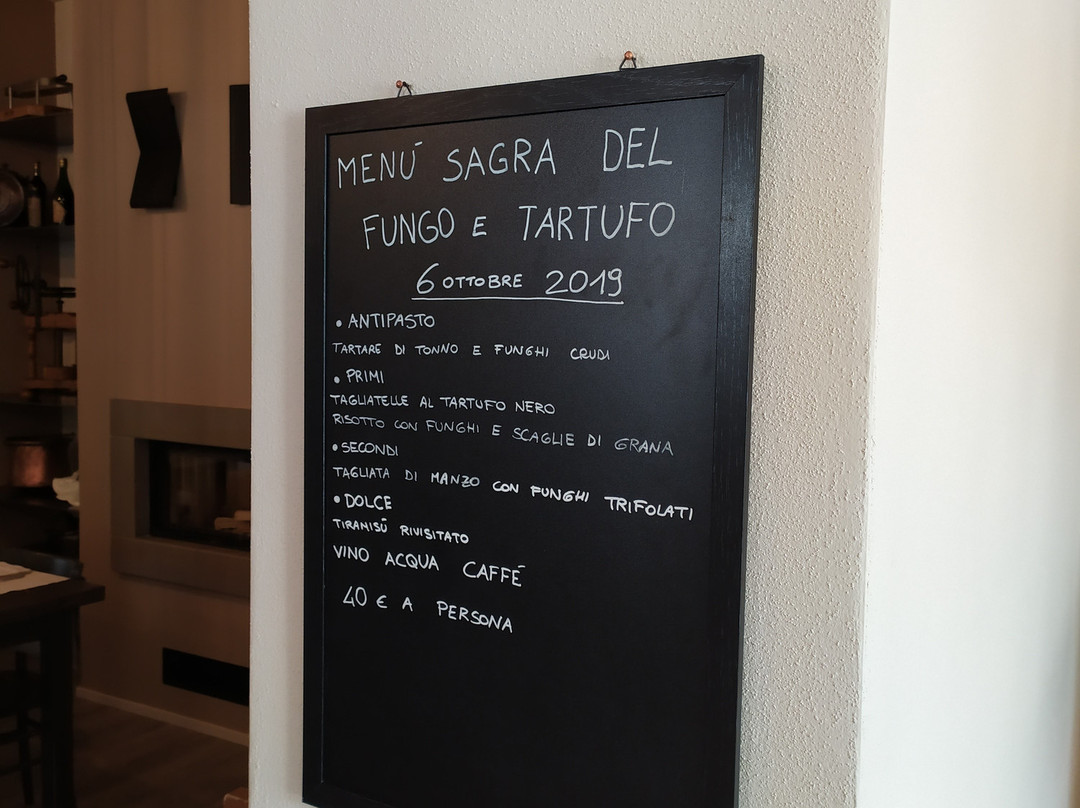 MENÚ SAGRA DEL
FUNGO E TARTUFO
6 OTTOBRE 2019
• ANTIPASTO
TARTARE DI TONNO E FUNGHI CRUDI
• PRIMI
TAGLIATELLE AL TARTUFO NERO
RISOTTO CON FUNGHI E SCAGLIE DI GRANA
• SECONDI
TAGLIATA DI MANZO CON FUNGHI TRIFOLATI
• DOLCE
TIRAMISÚ RIVISITATO
VINO ACQUA CAFFÉ
40 € A PERSONA